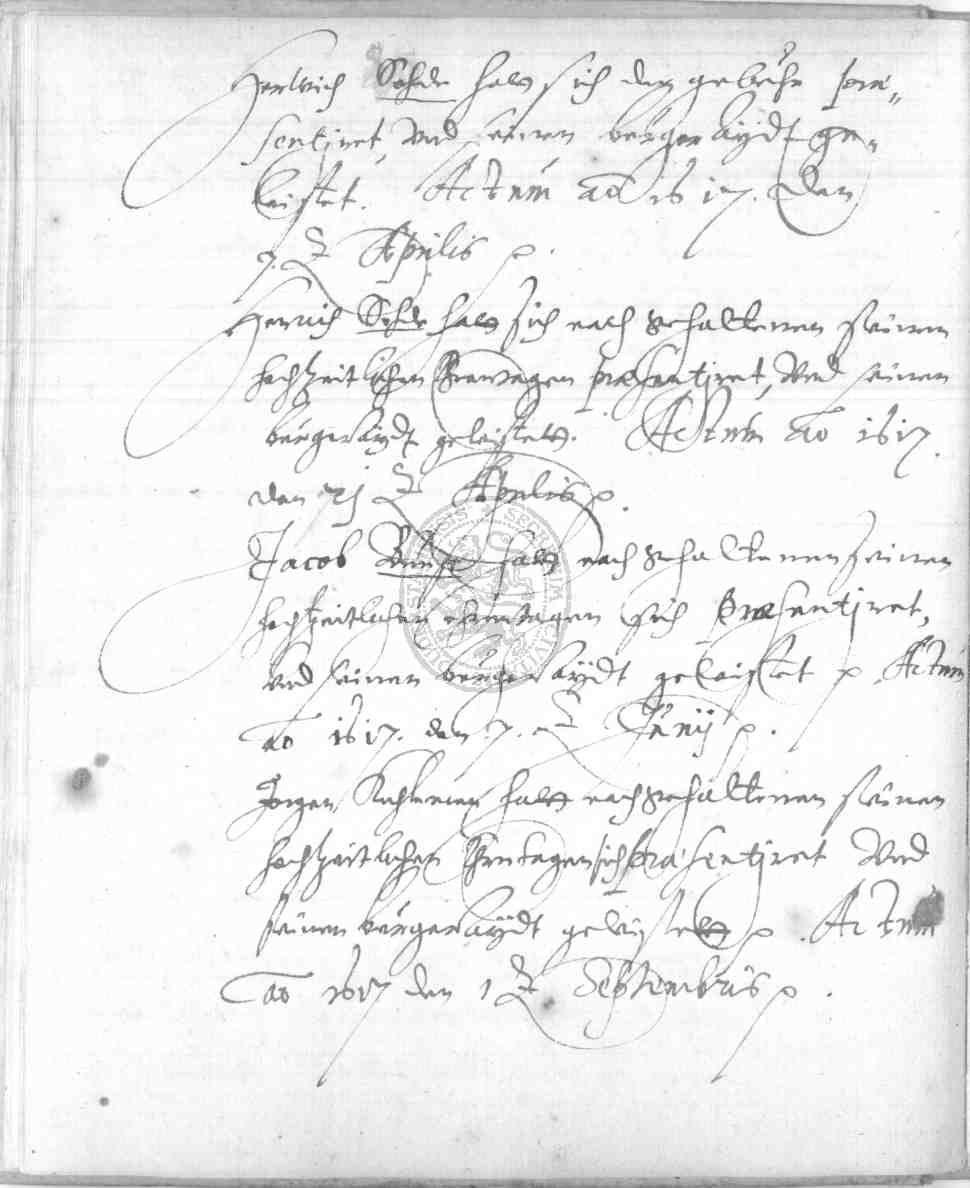 Henrich Sohde hatt sich der gebühr prae-
sentiret Vnd seinen bürger aÿdt ge-
leistet. Actum ao 1617. den
7. Aprilis
Henrich Sohde hatt sich nach gehaltenen seinen
hochzeitlichen Ehrentagen præsentiret, Vnd seinen
bürgeraÿdt geleistett. Actum ao 1617.
den 21 Aprilis
Jacob hatt nach gehaltenen seinen
hochzeitlichen ehrentagen sich Præsentiret,
vnd seinen bürger aÿdt geleistet Actum
ao 1617. den 7. Junij
Jorgen hatt nach gehaltenen seinen
hochzeitlichen Ehrentagen sich præsentiret Vnd
seinen bürgeraÿdt geleÿstett Actum
ao 1617 den 1 Septembris